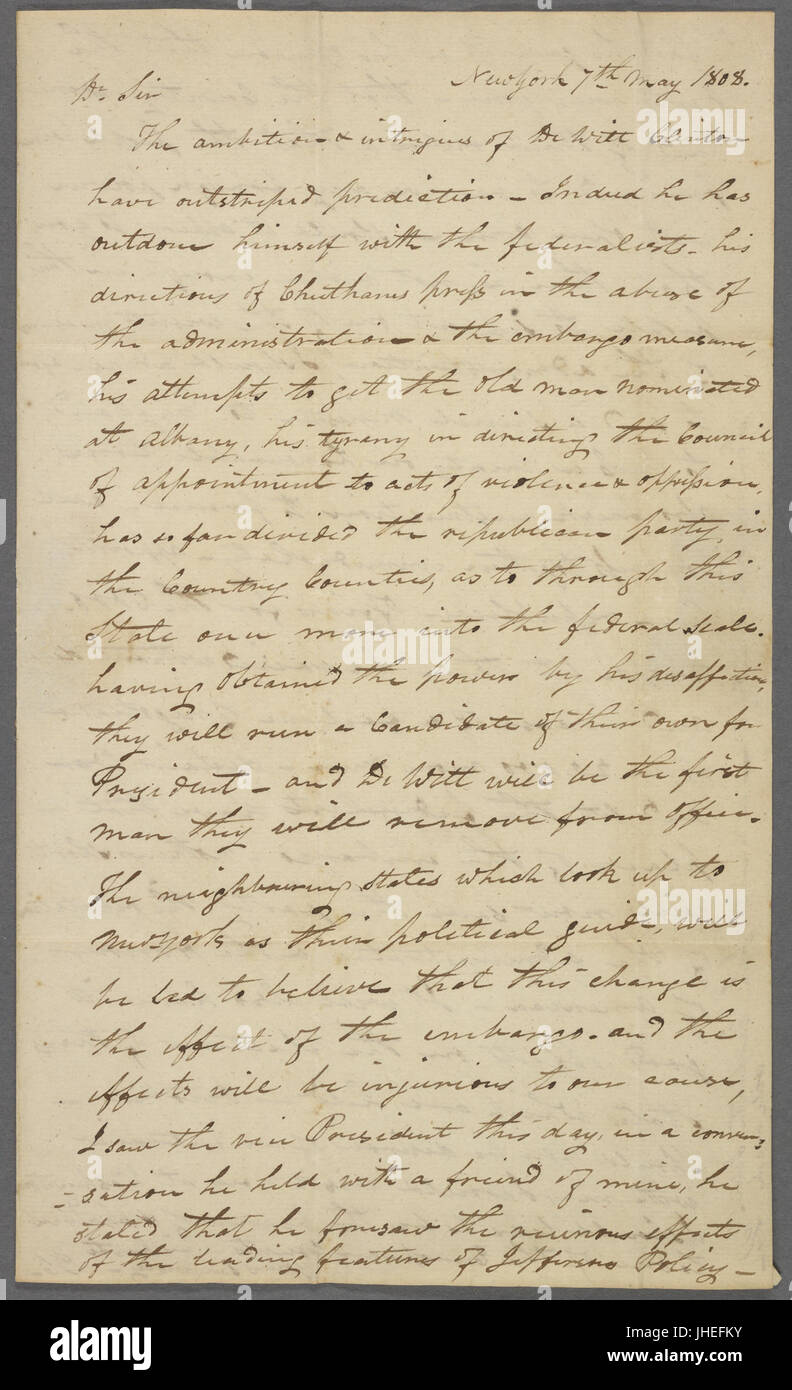 New York 7th May 1808.
Dr. Sir
The ambition & intrigues of De Witt Clinton
have outstriped prediction – Indeed he has
outdone himself with the federalists – his
directions of Cheethams press in the abuse of
the administration & the embargo measure,
his attempts to get the old man nominated
at Albany, his tyrany in directing the Council
of appointment to acts of violence & oppression,
has so far divided the republican party in
the Country Counties, as to through this
State once more into the federal scale.
having obtained the power by his disaffection,
they will run a Candidate of their own for
President – and De Witt will be the first
man they will remove from office.
The neighbouring states which look up to
New York as their political guide, will
be led to believe that this change is
the effect of the embargo. and the
effects will be injurious to our cause,
I saw the vice President this day, in a conver=
=sation he held with a friend of mine, he
stated that he foresaw the ruinous effects
of the leading features of Jeffersons Policy –
alamy
alamy
alamy
alamy
alamy
alamy
alamy
Image ID: JHEFKY
www.alamy.com